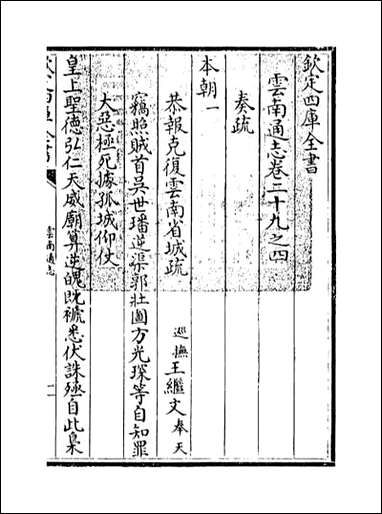 欽定四庫全書
雲南通志卷二十九之四
奏疏
本朝一
恭報克復雲南省城疏
巡撫王繼文奉天
竊照賊首吳世璠逆渠郭壯圖方光琛等自知罪
大惡極死據孤城仰仗
皇上聖德弘仁天威廟算逆魄既褫悉伏誅殛自此梟
雲南通志